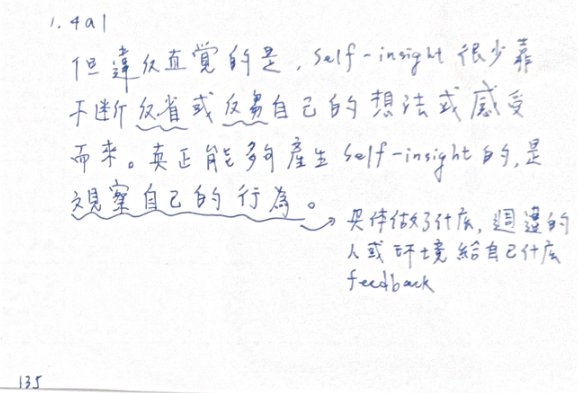 1.4a1
但違反直覺的是, self-insight 很少靠
不斷反省或反芻自己的想法或感受
而來。真正能夠產生 self-insight 的,是
觀察自己的行為。
具体做了什庅, 週遭的
人或环境給自己什庅
feedback
135